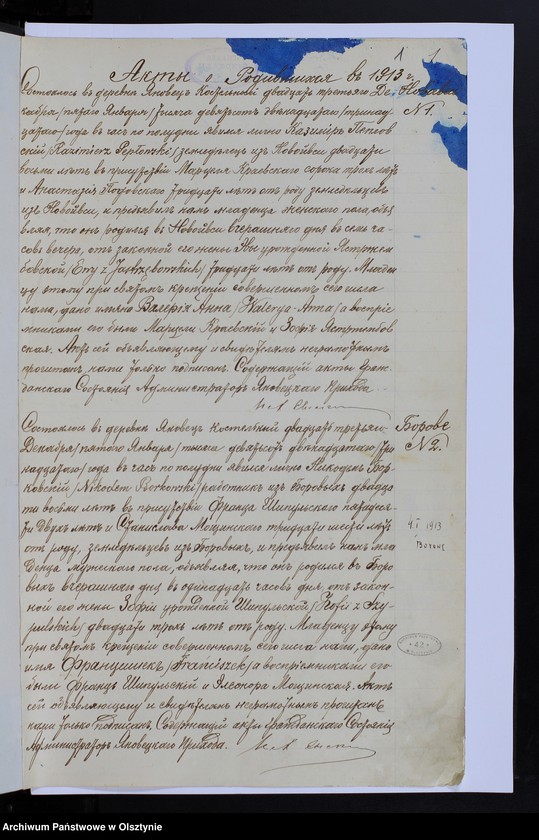 Акты о Родившихся въ 1913 г.
1
Состоялось въ деревнѣ Яновецъ Костельный двадцать третьяго Де-
кабря /пятаго Января/ тысяча девятьсотъ двѣнадцатаго /тринад
цатаго/ года въ часъ по полудни явился лично Казимѣръ Пеплов
скій /Kazimierz Pepłowski/ земледѣлецъ изъ двадцати
восьми лѣтъ въ присутствіи Марцина Краевскаго сорока трехъ лѣтъ
и тридцати лѣтъ отъ роду земледѣльцевъ
изъ и предъявилъ намъ младенца женскаго пола, объя
вляя, что онъ родился въ вчерашняго дня въ семь ча-
совъ вечера, отъ законной его жены Евы урожденной Ястржем
бовской /Ewy z Jastrzębowskich/ тридцати лѣтъ отъ роду. Младен
цу этому при святомъ крещеніи совершенномъ сего числа
нами, дано имя Валерія Анна /Walerya-Anna/ а воспріе
мниками его были Марцинъ Краевскій и Зофія Ястржембов
ская. Актъ сей объявляющему и свидѣтелямъ неграмотнымъ
прочитанъ, нами только подписанъ. Содержащій акты Граж-
данскаго Состоянія Администраторъ Яновецкаго Прихода
N1.
Состоялось въ деревнѣ Яновецъ Костельный двадцать третьяго
Декабря /пятаго Января/ тысяча девятьсотъ двѣнадцатаго /три
надцатаго/ года въ часъ по полудни явился лично Никодимъ Бор-
ковскій /Nikodem Borkowski/ работникъ изъ Боровыхъ двадца
ти восьми лѣтъ въ присутствіи Франца Шипульскаго пятьдеся-
ти двухъ лѣтъ и Станислава Мощинскаго тридцати шести лѣтъ
отъ роду, земледѣльцевъ изъ Боровыхъ, и предъявилъ намъ мла
денца мужескаго пола, объявляя, что онъ родился въ Боро
выхъ вчерашняго дня въ одинадцать часовъ дня, отъ закон-
ной его жены Зофіи урожденной Шипульской /Zofii z Szy-
pulskich/ двадцати трехъ лѣтъ отъ роду. Младенцу этому
при святомъ крещеніи совершенномъ сего числа нами, дано
имя Францишекъ /Franciszek/ а воспріемниками его
были Францъ Шипульскій и Элеонора Мощинская. Актъ
сей объявляющему и свидѣтелямъ неграмотнымъ прочитанъ
нами только подписанъ. Содержащій акты Гражданскаго Состоянія
Администраторъ Яновецкаго Прихода.
Борове
N2.
4.I 1913
Archiwum Państwowe w Olsztynie